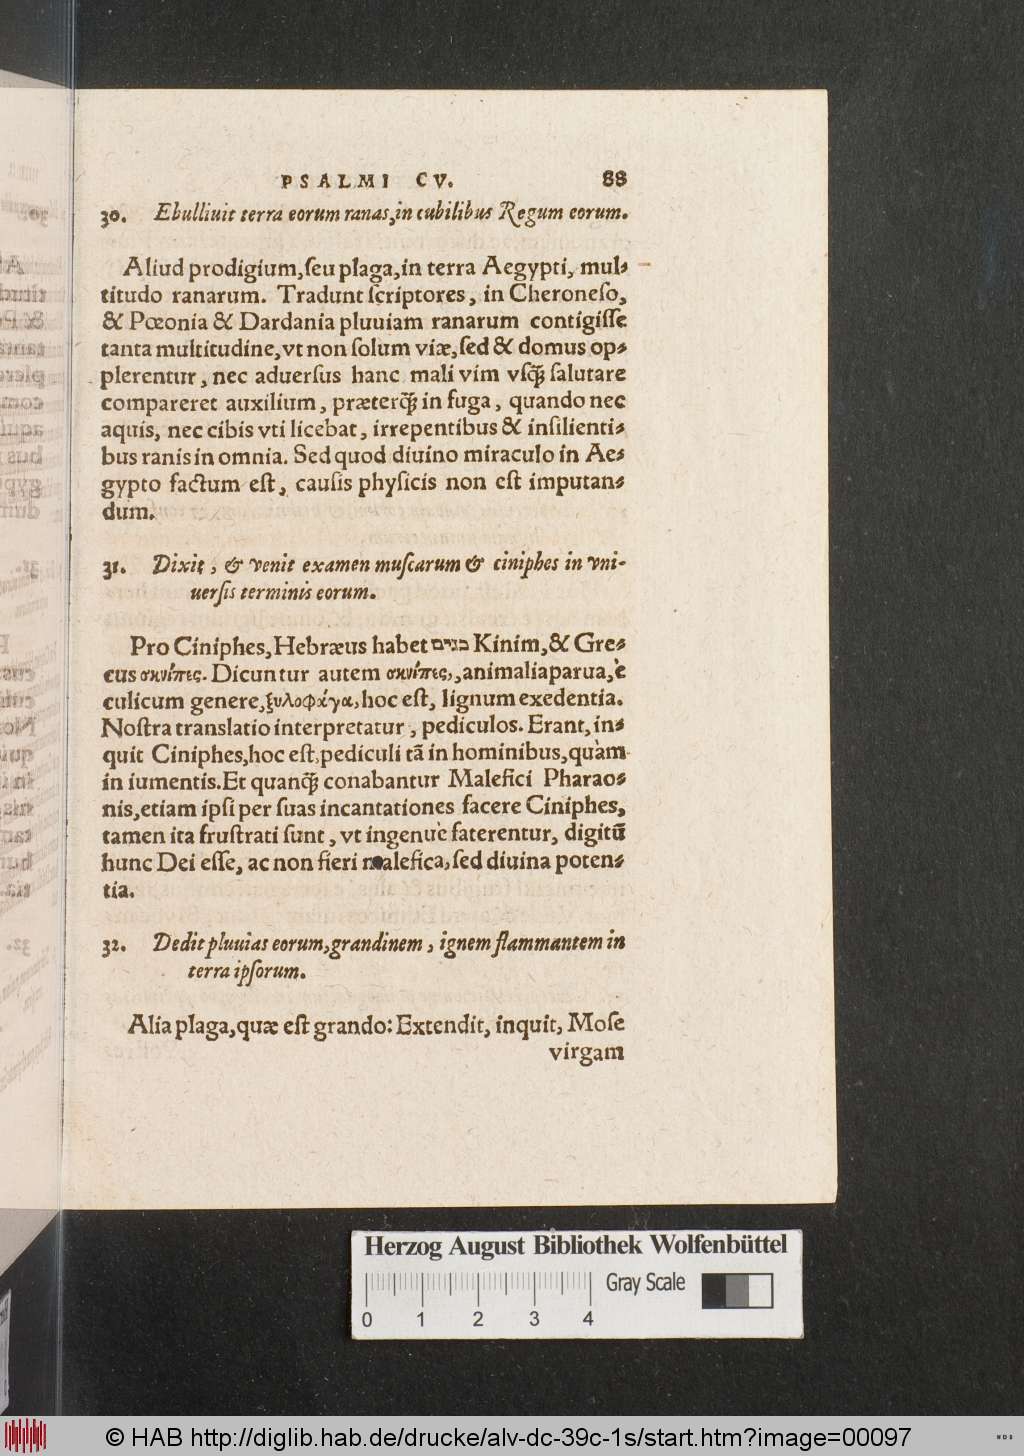 PSALMI CV. 88
30. Ebulliuit terra eorum ranas,in cubilibus Regum eorum.
Aliud prodigium,ſeu plaga,in terra Aegypti, mul⸗
titudo ranarum. Tradunt ſcriptores, in Cheroneſo,
& Pœonia & Dardania pluuiam ranarum contigiſſe
tanta multitudine,vt non ſolum viæ,ſed & domus op⸗
plerentur, nec aduerſus hanc mali vim vſq́; ſalutare
compareret auxilium, præterq̃; in fuga, quando nec
aquis, nec cibis vti licebat, irrepentibus & inſilienti⸗
bus ranis in omnia. Sed quod diuino miraculo in Ae⸗
gypto factum eſt, cauſis phyſicis non eſt imputan⸗
dum.
31. Dixit, & venit examen muſcarum & ciniphes in vni-
uerſis terminis eorum.
Pro Ciniphes,Hebræus habet כנים Kinim,& Gre⸗
cus σκνίπες. Dicuntur autem σκνίπες,,animalia parua,è
culicum genere,ξυλοφάγα,hoc eſt, lignum exedentia.
Noſtra translatio interpretatur, pediculos. Erant,in⸗
quit Ciniphes,hoc eſt,pediculi tã in hominibus,quàm
in iumentis.Et quanq̃; conabantur Malefici Pharao⸗
nis,etiam ipſi per ſuas incantationes facere Ciniphes,
tamen ita fruſtrati ſunt, vt ingenuè faterentur, digitũ
hunc Dei eſſe, ac non fieri malefica,ſed diuina poten⸗
tia.
32. Dedit pluuias eorum,grandinem, ignem flammantem in
terra ipſorum.
Alia plaga,quæ eſt grando: Extendit, inquit, Moſe
virgam
Herzog August Bibliothek Wolfenbüttel
Gray Scale
0 1 2 3 4
© HAB http://diglib.hab.de/drucke/alv-dc-39c-1s/start.htm?image=00097